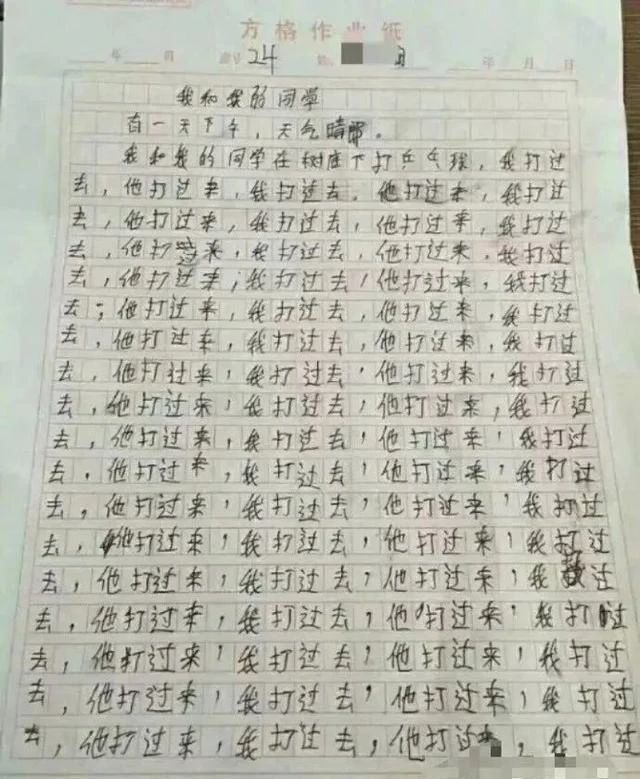 方格作业纸
年 月 24 年 月 日
我和我的同学
有一天下午，天气晴朗。
我和我的同学在树底下打乒乓球，我打过
去，他打过来，我打过去，他打过来，我打过
去，他打过来，我打过去，他打过来，我打过
去，他打过来，我打过去，他打过来，我打过
去，他打过来，我打过去，他打过来，我打过
去，他打过来，我打过去，他打过来，我打过
去，他打过来，我打过去，他打过来，我打过
去，他打过来，我打过去，他打过来，我打过
去，他打过来，我打过去，他打过来，我打过
去，他打过来，我打过去，他打过来，我打过
去，他打过来，我打过去，他打过来，我打过
去，他打过来，我打过去，他打过来，我打过
去，他打过来，我打过去，他打过来，我打过
去，他打过来，我打过去，他打过来，我过
去，他打过来，我打过去，他打过来，我打过
去，他打过来，我打过去，他打过来，我打过
去，他打过来，我打过去，他打过来，我打过
去，他打过来，我打过去，他打过来，我打过